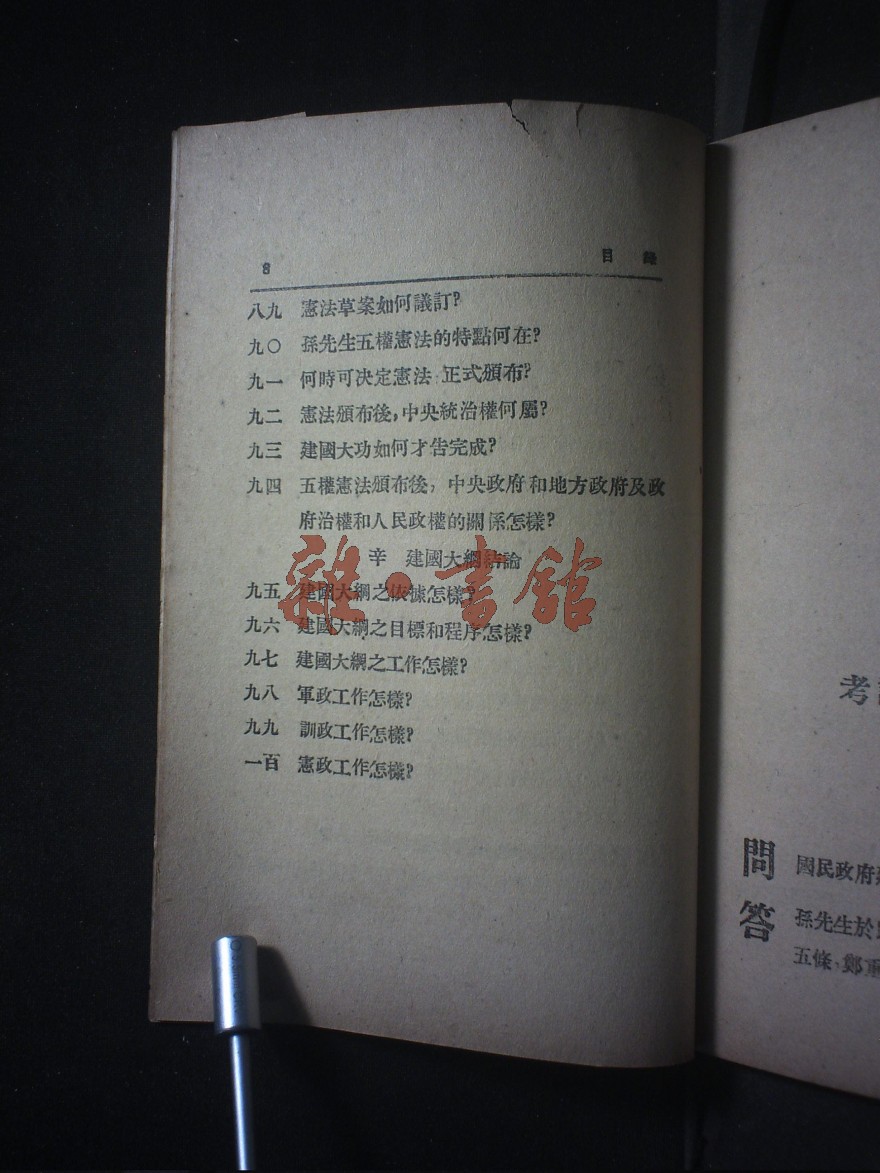 8 目錄
八九 憲法草案如何議訂?
九〇 孫先生五權憲法的特點何在?
九一 何時可决定憲法 正式頒布?
九二 憲法頒布後,中央統治權何屬?
九三 建國大功如何才告完成?
九四 五權憲法頒布後,中央政府和地方政府及政
府治權和人民政權的關係怎樣?
辛 建國大綱結論
九五 建國大綱之依據怎樣?
九六 建國大綱之目標和程序怎樣?
九七 建國大綱之工作怎樣?
九八 軍政工作怎樣?
九九 訓政工作怎樣?
一百 憲政工作怎樣?
雜·書館
考
問 國民政府
答 孫先生於
五條、鄭重